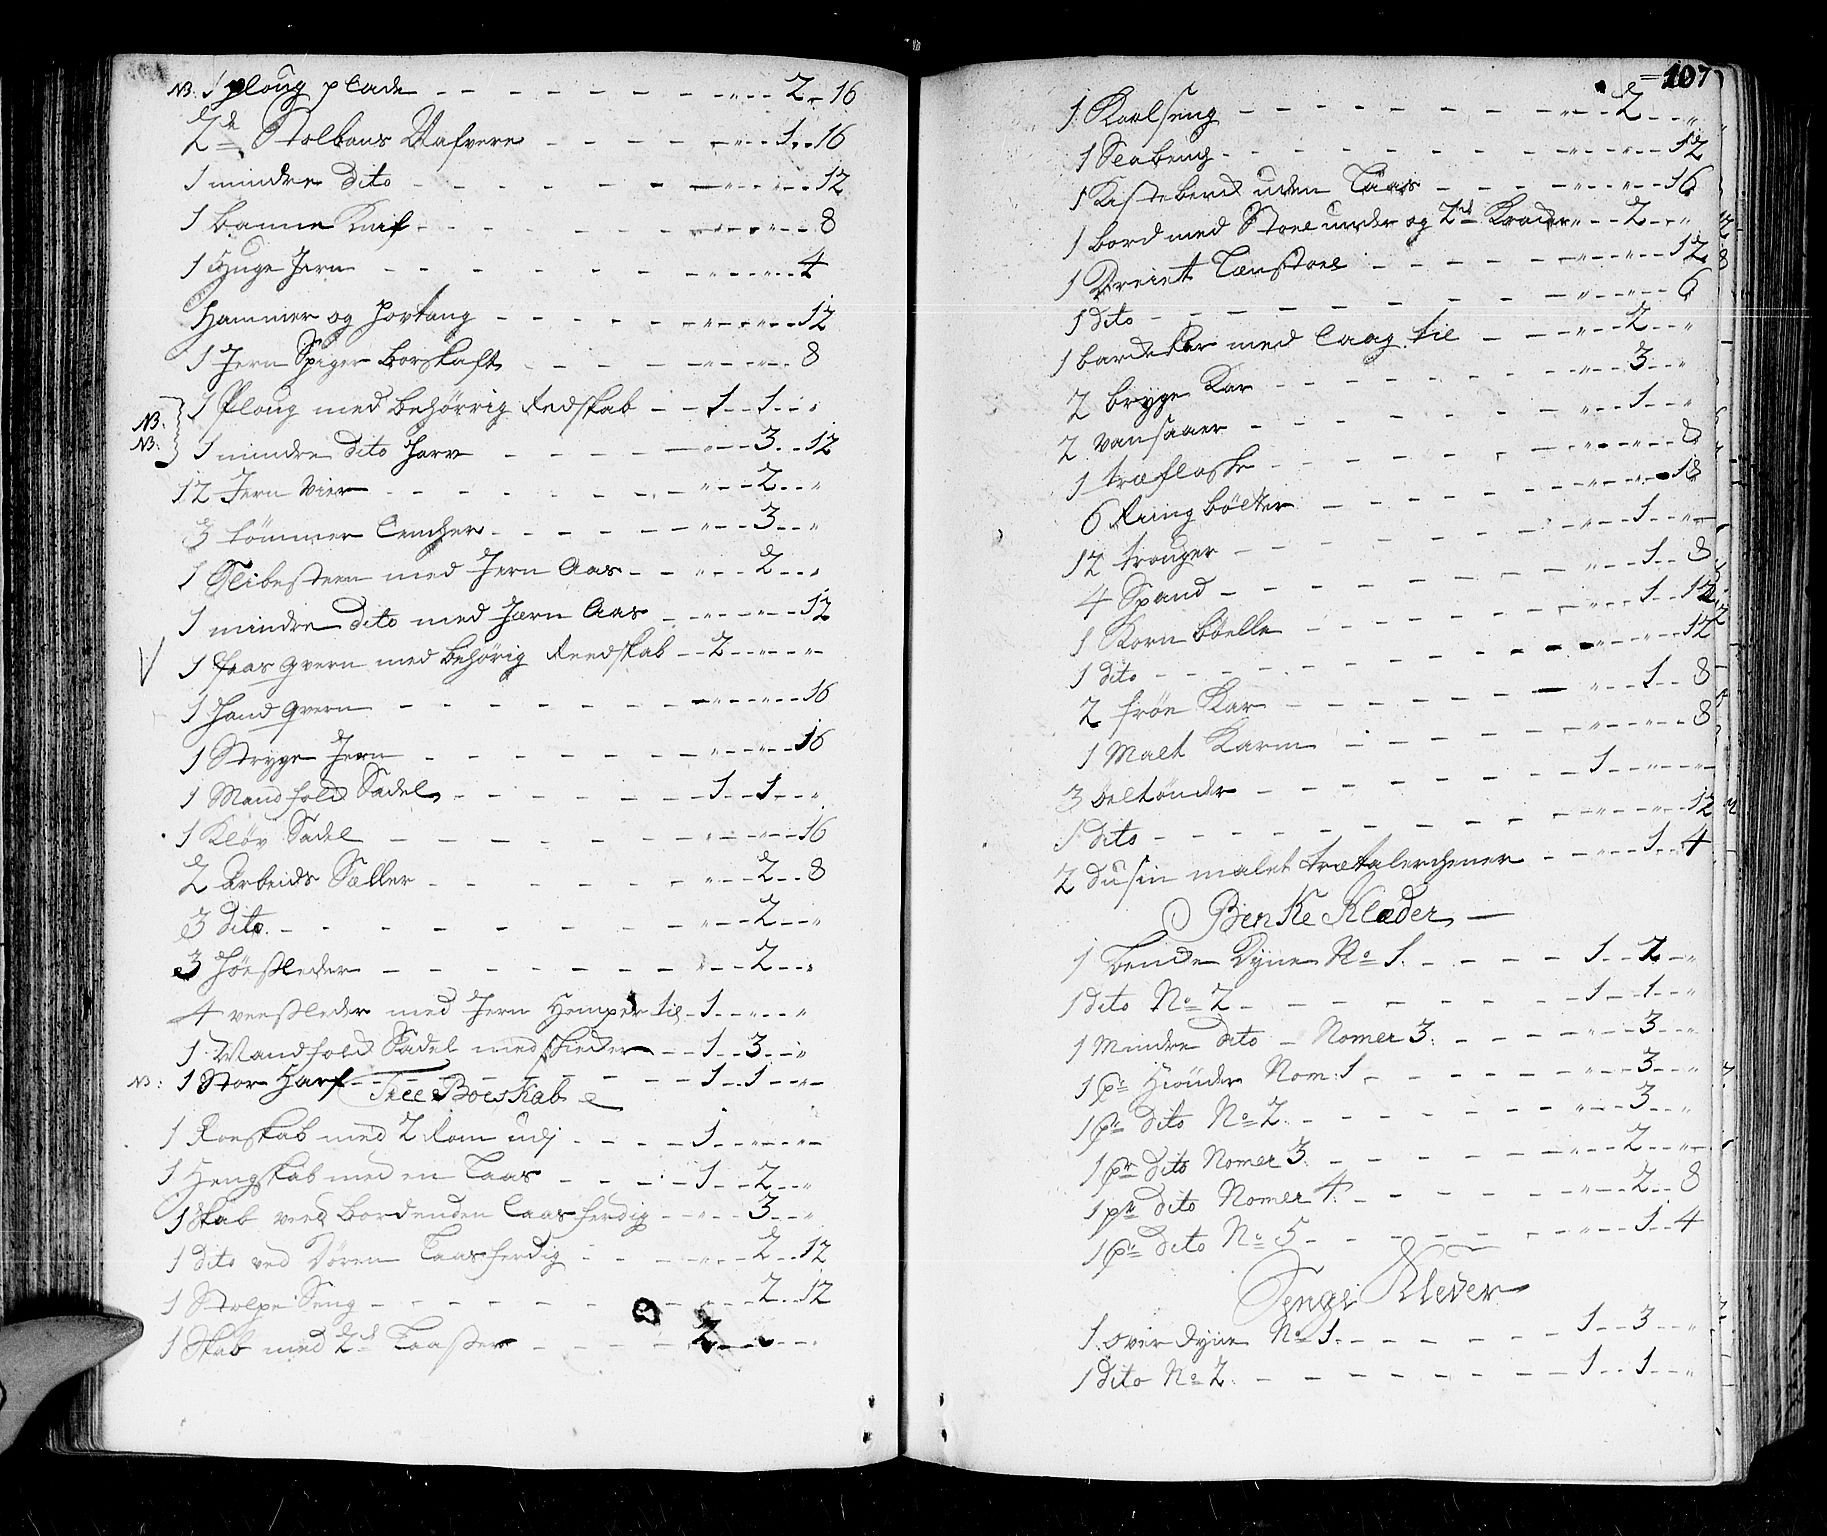 NB. 1 ploug plade - - - - - - - „ - - 2 - 16
2de Stolbans Nafvere - - - - „ - - 1 - 16
1 mindre dito - - - - - - „ - „ - - 12
1 banne Knif - - - - - - „ - „ - - 8
1 Huge Jern - - - - - - „ - „ - - 4
Hammer og Hovtang - - - - - „ - „ - - 12
1 Jern Spiger Borskaft - - - - „ - „ - - 8
NB. 1 Ploug med behörrig Redskab - - 1 - 1 - „
NB. 1 mindre dito Harv - - - - „ - - 3 - 12
12 Jern Vier - - - - - - „ - - 2 - - „
3 tömmer Lencher - - - - - „ - - 3 - - „
1 Slibesteen med Jern Aas - - „ - - 2 - - „
1 mindre dito med Jærn Aas - „ - „ - - 12
1 qvern med behörig Reedskab - - 2 - „ - „
1 Hand qvern - - - - - - „ - „ - - 16
1 Stryge Jern - - - - - - „ - „ - - 16
1 Mandfolk Sadel - - - - - 1 - 1 - „
1 Kløv Sadel - - - - - - „ - „ - - 16
2 Arbeids Sæller - - - - - „ - - 2 - - 8
3 dito - - - - - - - - „ - - 2 - - „
3 Höesleder - - - - - - „ - - 2 - - „
4 veesleder med Jern Hemper til - 1 - „ - „
1 Mandfolk Sadel med - - 1 - 3 - „
NB: 1 Stor Harf - - - - - - 1 - 1 - „
Træe Boeskab
1 Roeskab med 2 Rom udj - - - - 1 - „ - „
1 Hengskab med en Laas - - - - 1 - 2 - „
1 Skab ved Bordenden Laasferdig - - „ - - 3 - - „
1 dito ved Dören Laasferdig - - „ - - 2 - 12
1 Stolpe Seng - - - - - - - - 2 - 12
1 Skab med 2de Laasser - - - - 2 - „ - „
107
1 Karlseng - - - - - - „ - - 2 - - „
1 Slabench - - - - - - „ - „ - - 12
1 Kistebenk uden Laas - - - - „ - „ - - 16
1 Bord med Stoel under og 2de Krakker „ - - 2 - - „
1 Dreiet Lænstoel - - - - „ - „ - - 12
1 dito - - - - - - - „ - „ - - 6
1 Kar med Laag til - - „ - - 2 - - „
2 brygge Kar - - - - - - „ - - 3 - - „
2 vansaaer - - - - - - „ - - 1 - - „
1 træflaske - - - - - - „ - „ - - 8
6 Ring bötter - - - - - „ - „ - - 18
12 trouger - - - - - - „ - - 1 - - „
4 Spand - - - - - - „ - - 1 - - 8
1 Korn bölle - - - - - „ - - 1 - - 12
1 dito - - - - - - - „ - „ - - 12
2 Kar - - - - - - „ - - 1 - - 8
1 Malt Karm - - - - - „ - „ - - 8
3 tönder - - - - - - 1 - „ - „
1 dito - - - - - - - „ - „ - - 12
2 dusin malet trætalerchener - - „ - - 1 - - 4
Benke Klæder
1 Benke Dyne No 1. - - - - 1 - 2 - „
1 dito No 2 - - - - - - 1 - 1 - „
1 Mindre dito - Nomer 3. - - - „ - - 3 - - „
1 pr Hiönder Nom: 1 - - - - - „ - - 3 - - „
1 pr dito No 2. - - - - - „ - - 3 - - „
1 pr dito Nomer 3. - - - - - „ - - 2 - - „
1 pr dito Nomer 4. - - - - „ - - 2 - - 8
1 pr dito No 5 - - - - - „ - - 1 - - 4
Senge Klæder
1 over dyne No 1. - - - - - 1 - 3 - „
1 dito No 2. - - - - - - 1 - 1 - „